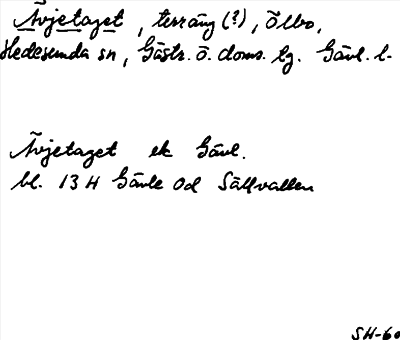 Åvjetaget, terräng (?), Ölbo,
Hedesunda sn, Gästr. ö. doms. lg. Gävl. l.
Åvjetaget ek Gävl.
bl. 13 H Gävle 0d Sällvallen
SH-60